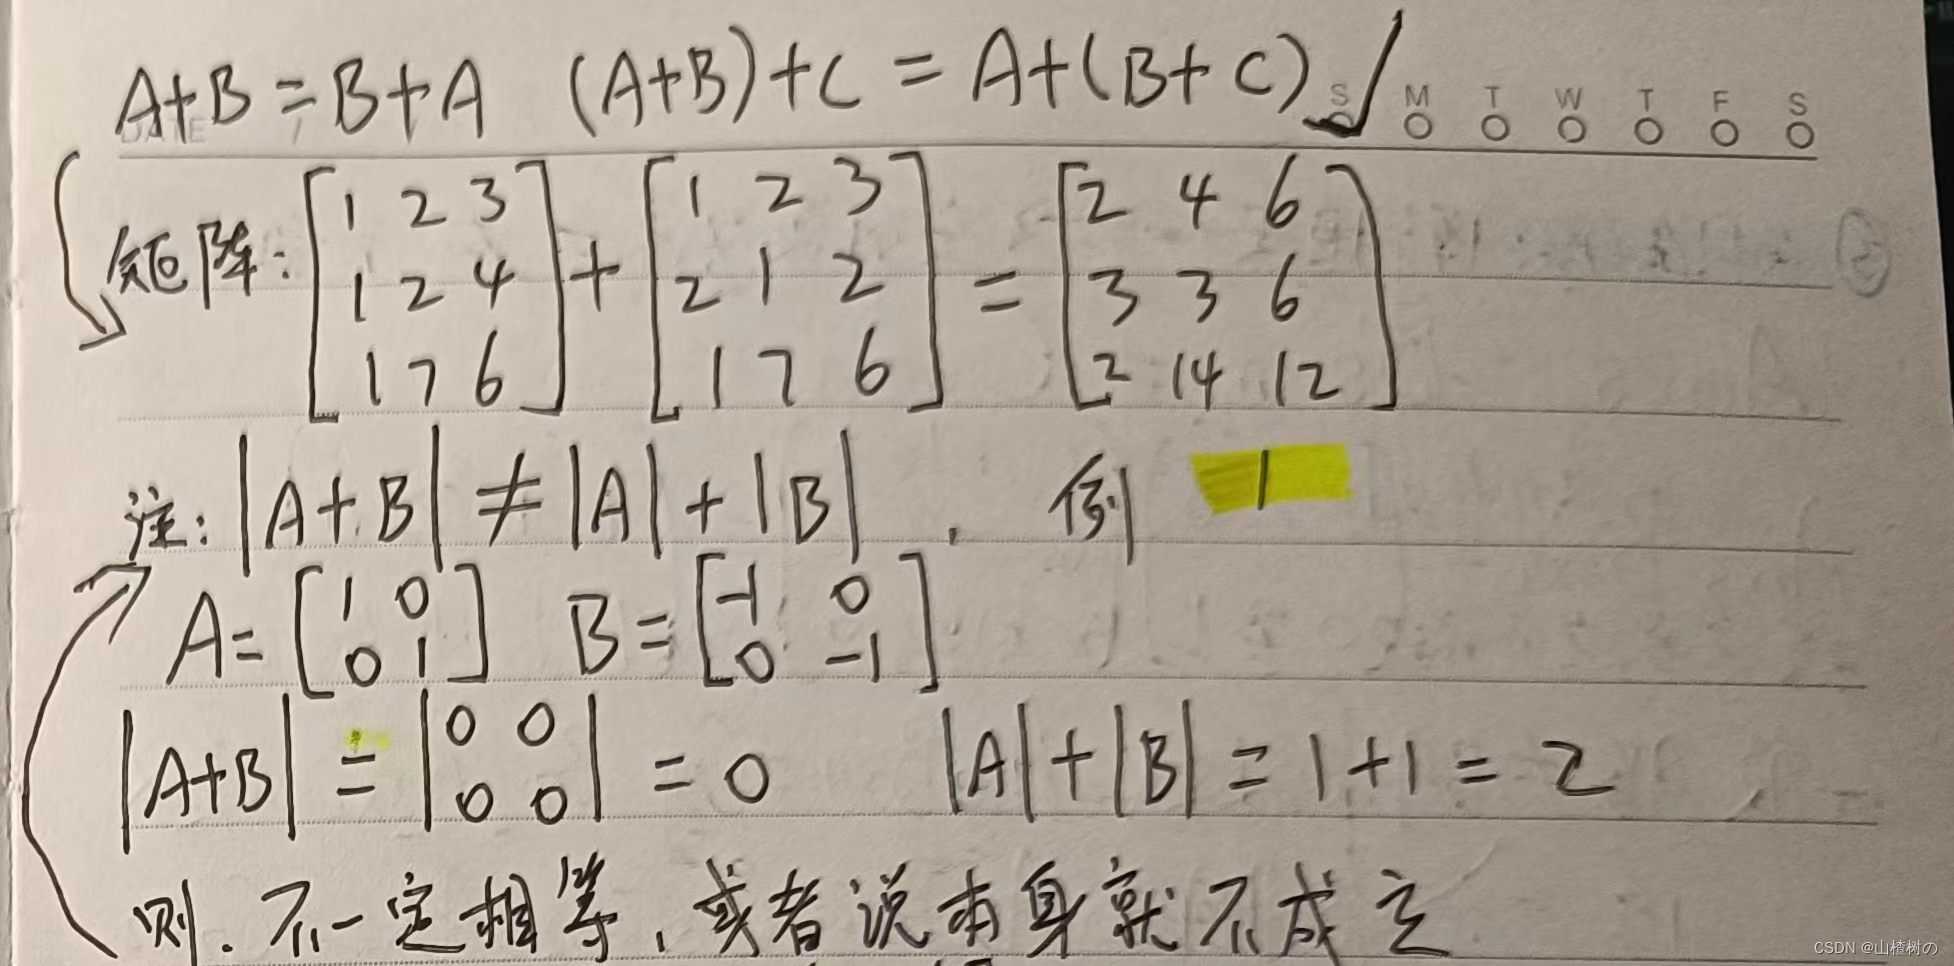 A+B=B+A (A+B)+C=A+(B+C)
DATE S M T W T F S
矩阵: [1 2 3 + [1 2 3 = [2 4 6
1 2 4 2 1 2 3 3 6
1 7 6] 1 7 6] 2 14 12]
注: |A+B| ≠ |A|+|B| , 例 1
A=[1 0 B=[-1 0
0 1] 0 -1]
|A+B| = |0 0
0 0| = 0 |A|+|B| = 1+1 = 2
则. 不一定相等, 或者说本身就不成立
CSDN @山楂树の